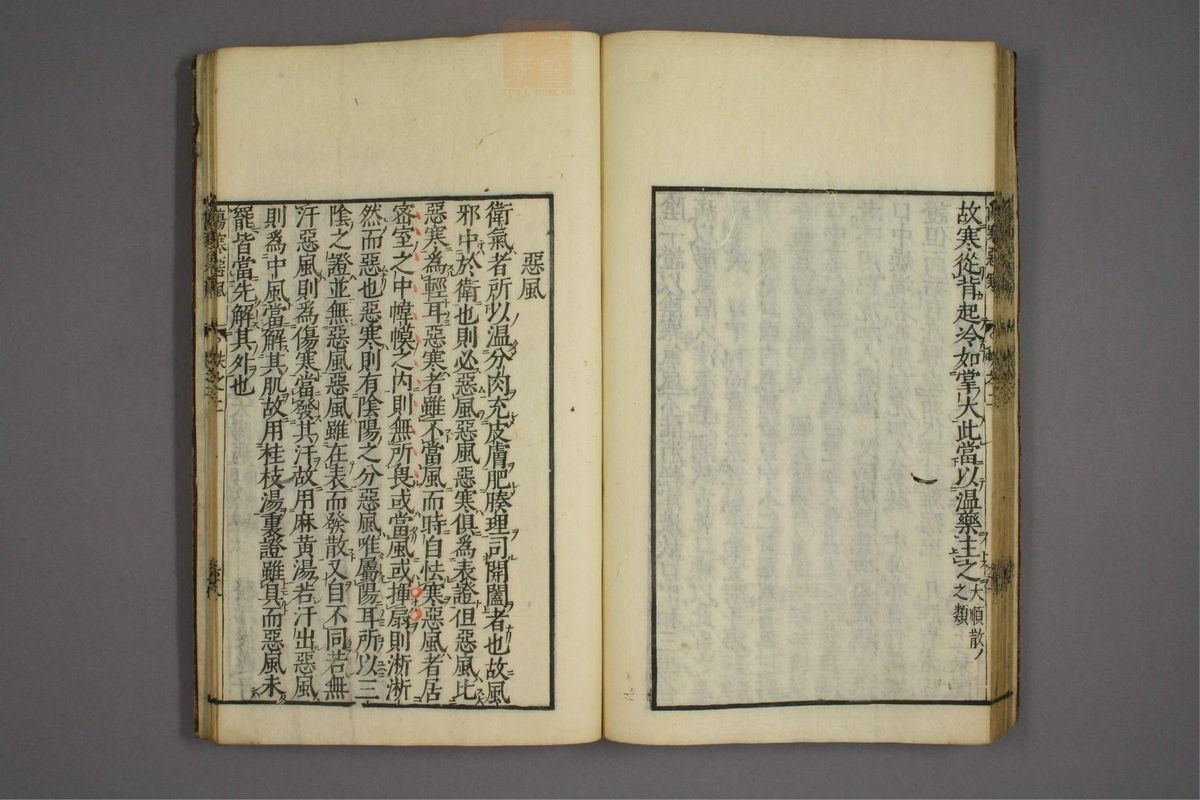 故寒從背起冷如掌大此當以温藥主之大順散ノ
之類
惡風
衛氣者所以温分肉充皮膚肥腠理司開闔者也故風
邪中於衛也則必惡風惡風惡寒俱爲表證但惡風比
惡寒爲輕耳惡寒者雖不當風而時自怯寒惡風者居
密室之中幃幙之内則無所畏或當風或揮扇則淅淅
然而惡也惡寒則有陰陽之分惡風唯屬陽耳所以三
陰之證並無惡風惡風雖在表而發散又自不同若無
汗惡風則爲傷寒當發其汗故用麻黄湯若汗出惡風
則爲中風當解其肌故用桂枝湯重證雖具而惡風未
罷皆當先解其外也